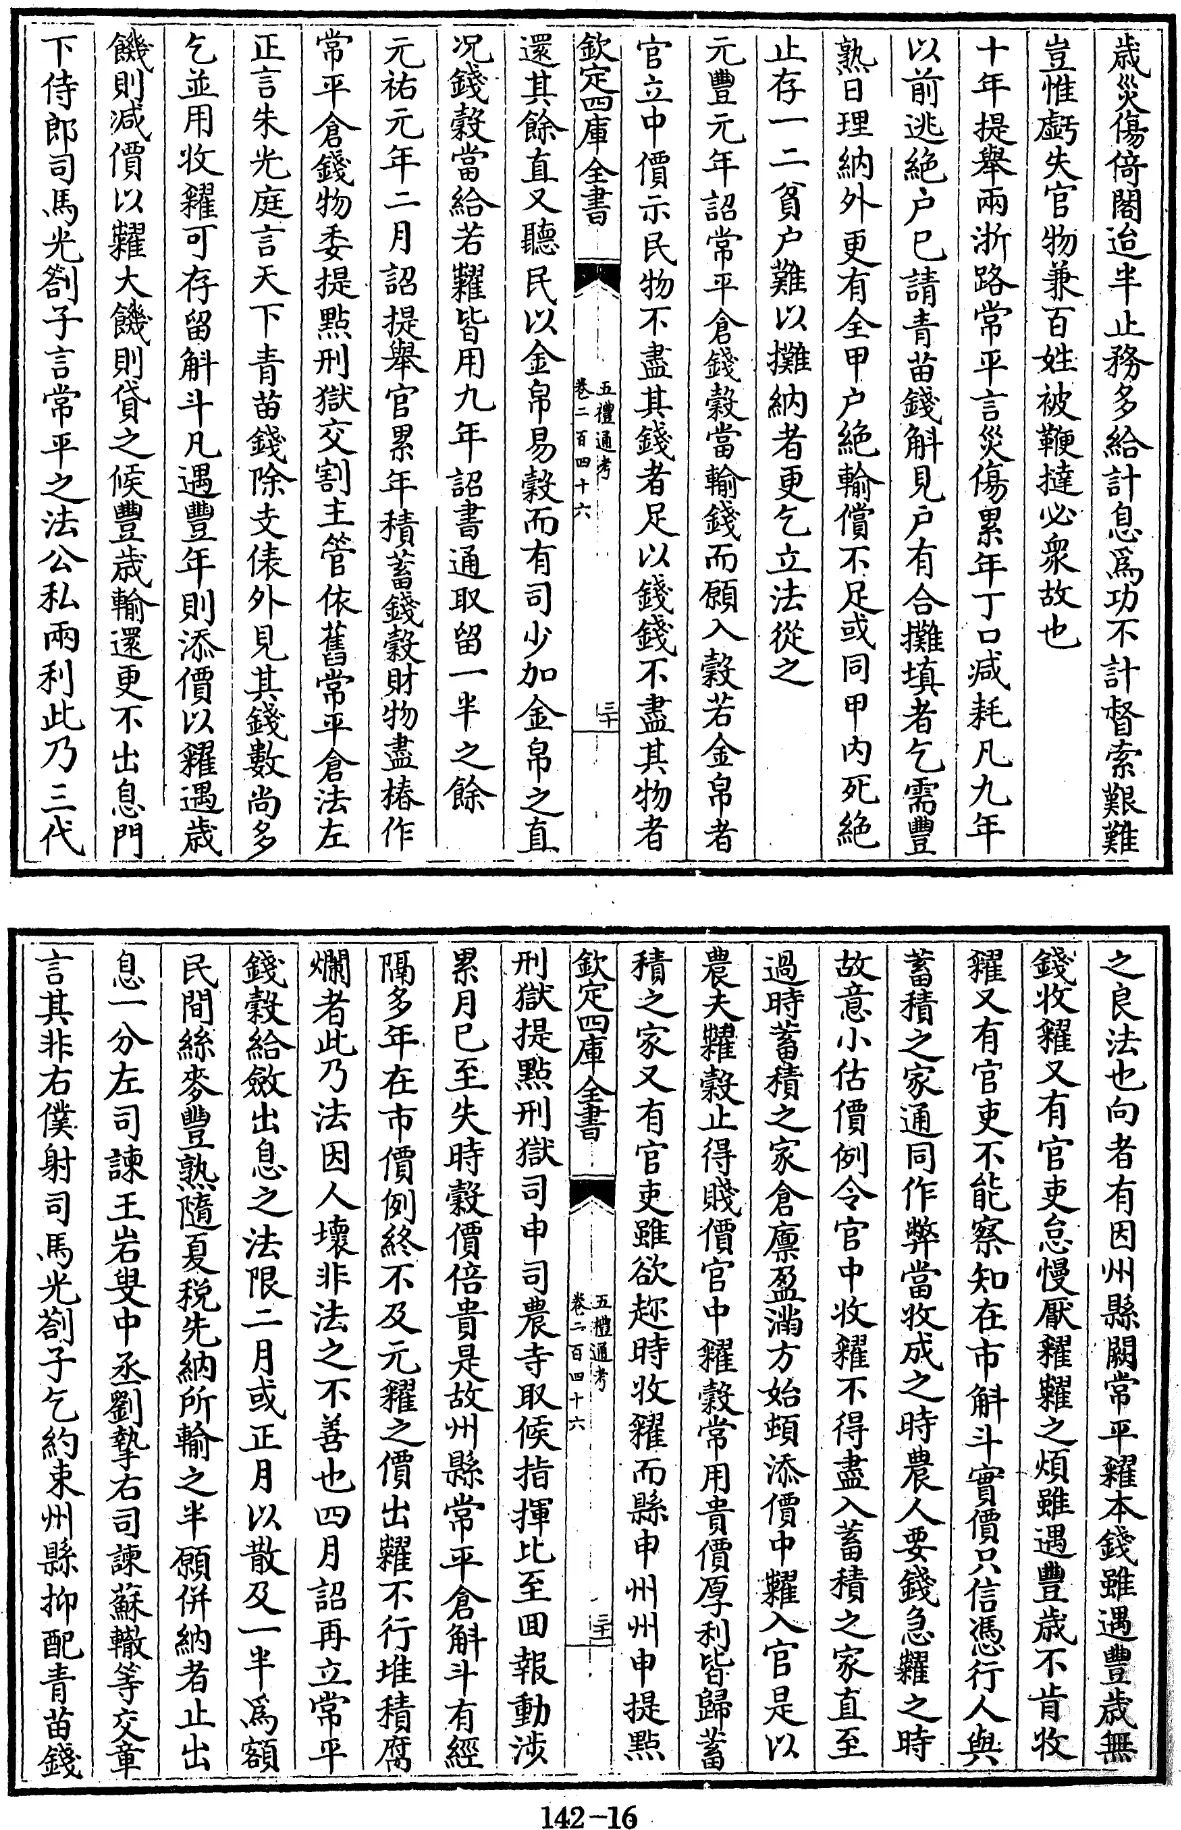 歳災傷倚閣迨半止務多給計息爲功不計督索艱難
豈惟虧失官物兼百姓被鞭撻必衆故也
十年提舉兩浙路常平言災傷累年丁口減耗凡九年
以前逃絶户已請青苗錢斛見户有合攤填者乞需豐
熟日理納外更有全甲户絶輸償不足或同甲内死絶
止存一二貧户難以攤納者更乞立法從之
元豐元年詔常平倉錢穀當輸錢而願入穀若金帛者
官立中價示民物不盡其錢者足以錢錢不盡其物者
欽定四庫全書
五禮通考
卷二百四十六
三十
還其餘直又聽民以金帛易穀而有司少加金帛之直
况錢穀當給若糶皆用九年詔書通取留一半之餘
元祐元年二月詔提舉官累年積蓄錢穀財物盡樁作
常平倉錢物委提點刑獄交割主管依舊常平倉法左
正言朱光庭言天下青苗錢除支俵外見其錢數尚多
乞並用收糴可存留斛斗凡遇豐年則添價以糴遇歳
饑則減價以糶大饑則貸之候豐歳輸還更不出息門
下侍郎司馬光劄子言常平之法公私兩利此乃三代
之良法也向者有因州縣闕常平糴本錢雖遇豐歳無
錢收糴又有官吏怠慢厭糴糶之煩雖遇豐歳不肯收
糴又有官吏不能察知在市斛斗實價只信憑行人與
蓄積之家通同作弊當收成之時農人要錢急糶之時
故意小估價例令官中收糴不得盡入蓄積之家直至
過時蓄積之家倉廩盈滿方始頓添價中糶入官是以
農夫糶穀止得賤價官中糴穀常用貴價厚利皆歸蓄
積之家又有官吏雖欲趂時收糴而縣申州州申提點
欽定四庫全書
五禮通考
卷二百四十六
三十一
刑獄提點刑獄司申司農寺取候指揮比至囬報動涉
累月已至失時穀價倍貴是故州縣常平倉斛斗有經
隔多年在市價例終不及元糴之價出糶不行堆積腐
爛者此乃法因人壞非法之不善也四月詔再立常平
錢穀給斂出息之法限二月或正月以散及一半爲額
民間絲麥豐熟隨夏税先納所輸之半願併納者止出
息一分左司諫王岩叟中丞劉摯右司諫蘇轍等交章
言其非右僕射司馬光劄子乞約束州縣抑配青苗錢
142-16